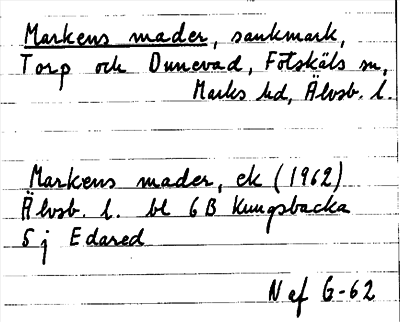 Markens mader, sankmark,
Torp och Dunevad, Fotskäls sn,
Marks hd, Älvsb. l.
Markens mader, ek (1962)
Älvsb. l. bl 6B Kungsbacka
5j Edared
N af G-62